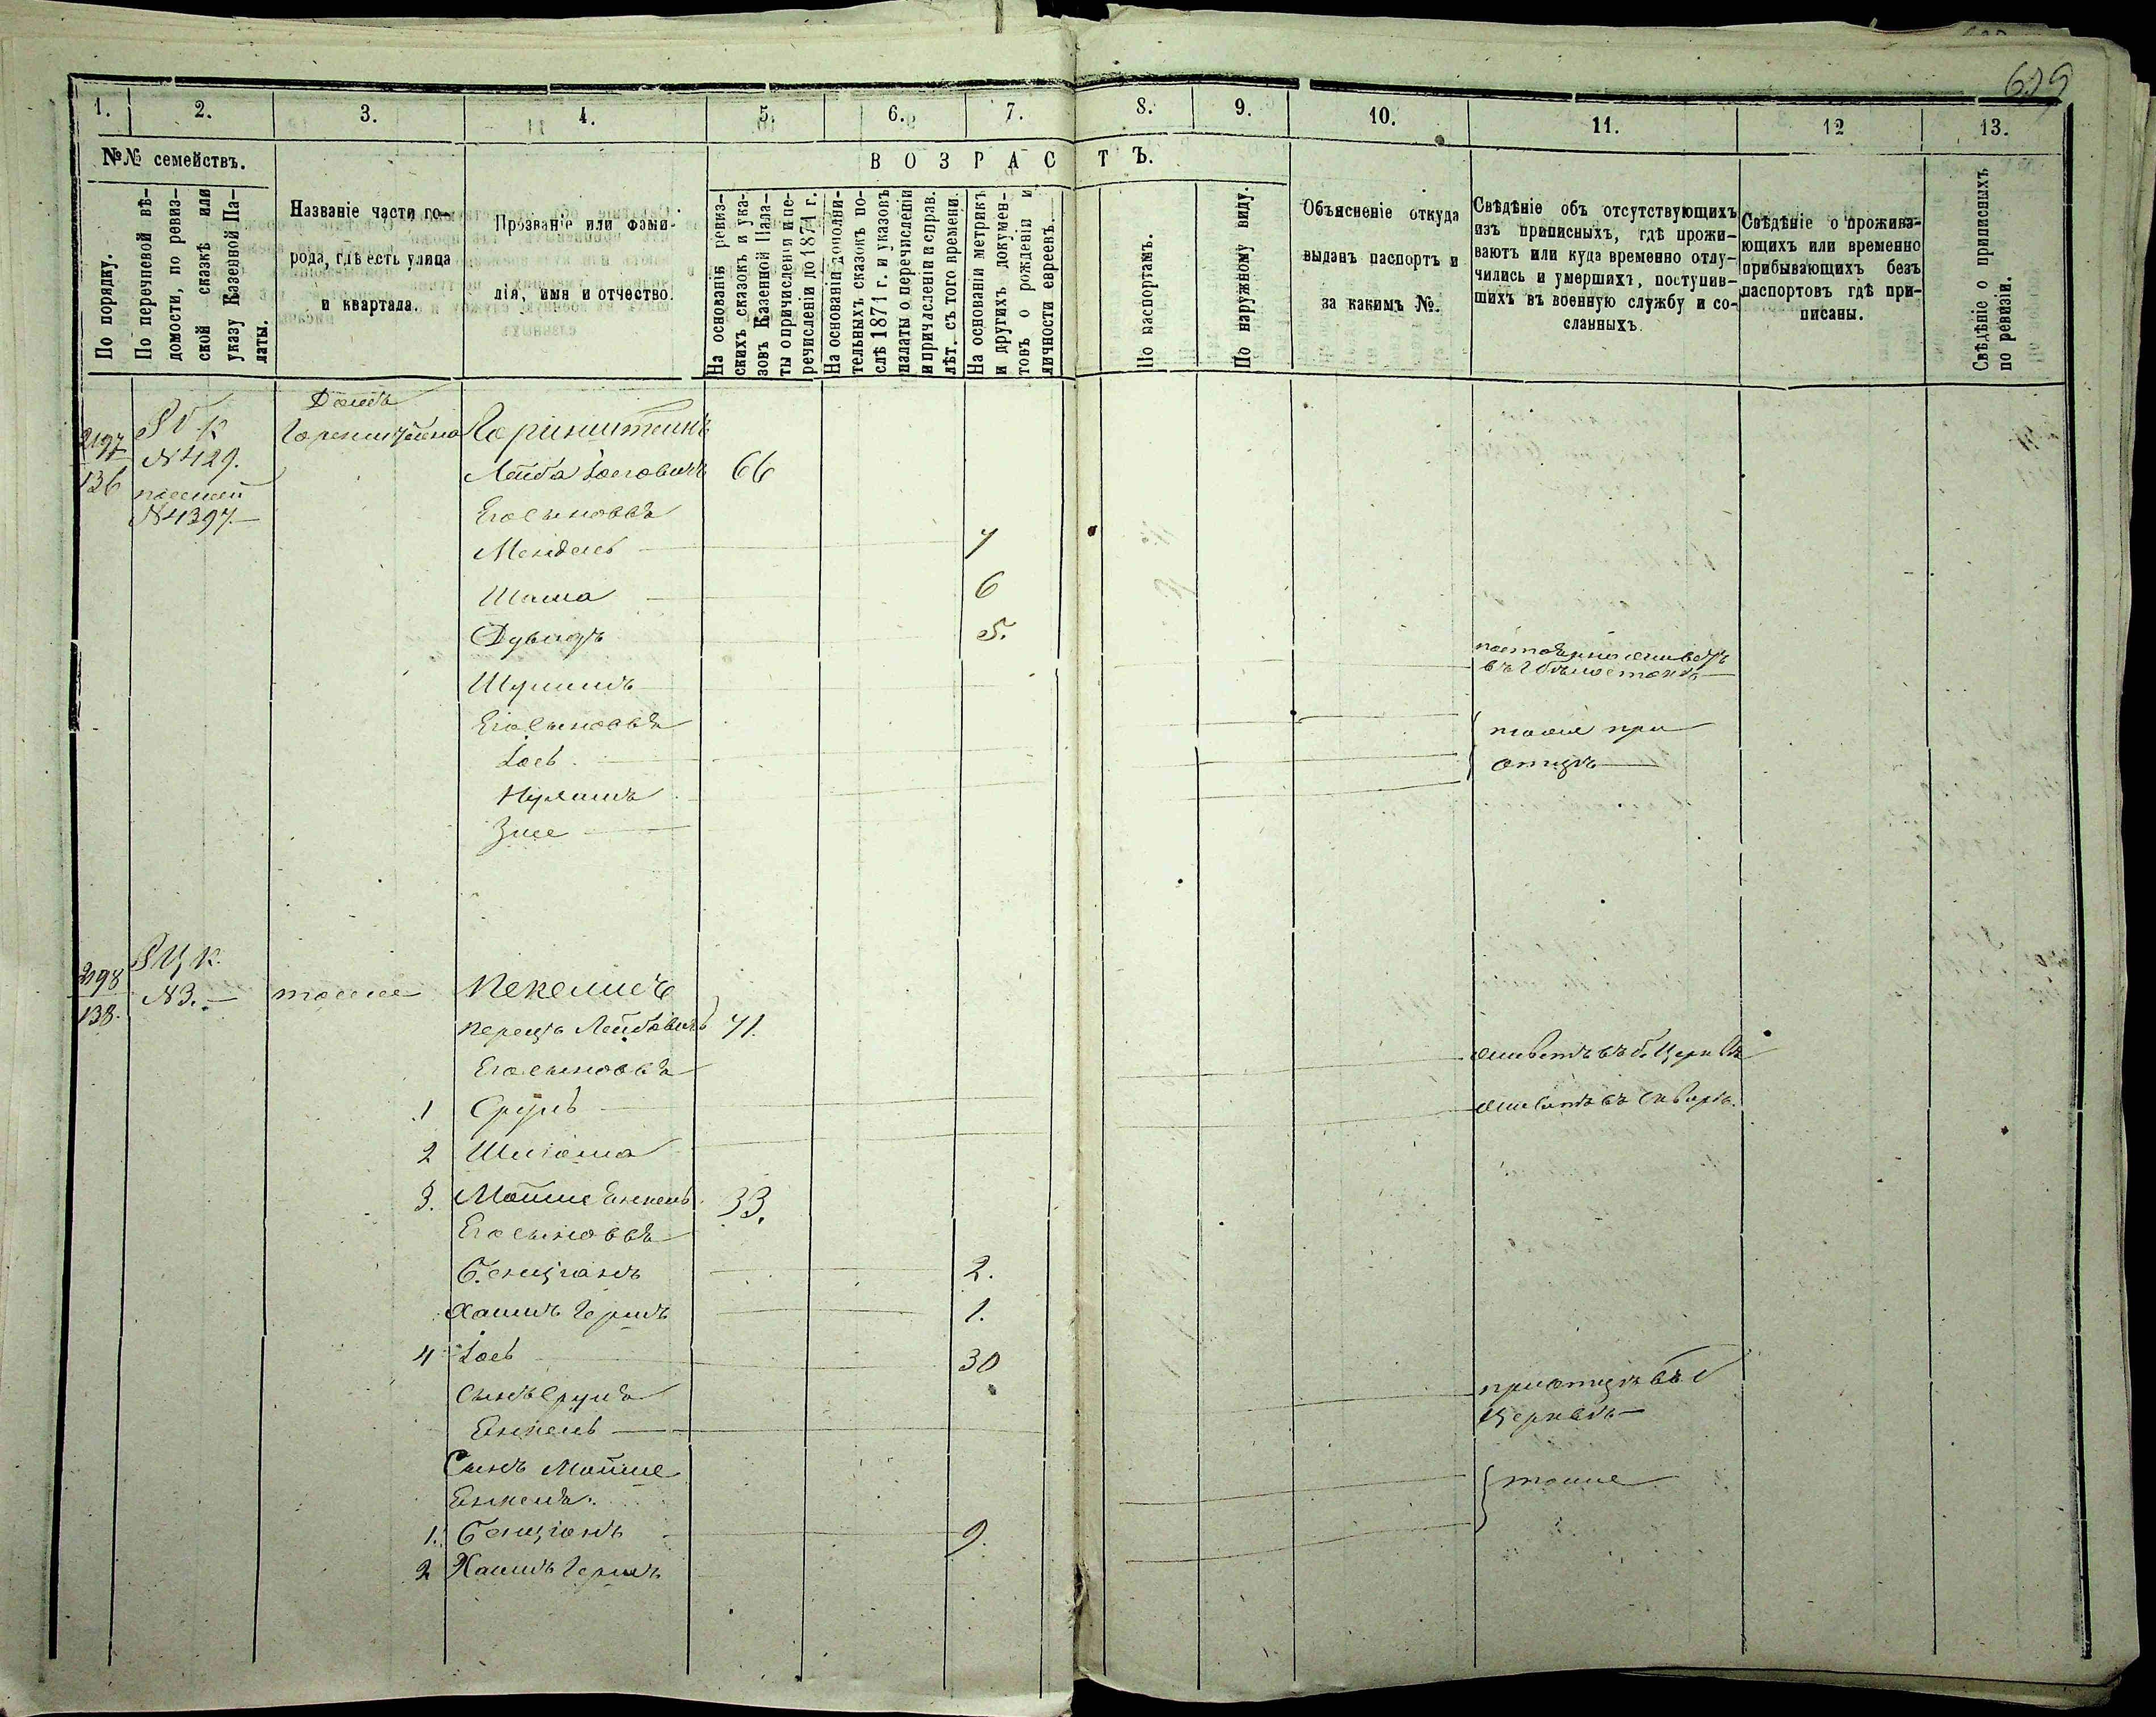 639
1. 2. 3. 4. 5. 6. 7. 8. 9. 10. 11. 12 13.
№№ семействъ.
По порядку.
По перечневой вѣ-
домости, по ревиз-
ской сказкѣ или
указу Казенной Па-
латы.
Названіе части го-
рода, гдѣ есть улица
и квартала.
Прозваніе или фами-
лія, имя и отчество.
ВОЗРАСТЪ.
На основаніи ревиз-
скихъ сказокъ и ука-
зовъ Казенной Пала-
ты о причисленіи и пе-
речисленіи до 1871 г.
На основаніи дополни-
тельныхъ сказокъ по-
слѣ 1871 г. и указовъ
палаты о перечисленіи
и причисленіи и справ.
лѣт. съ того времени.
На основаніи метрикъ
и другихъ докумен-
товъ о рожденіи и
личности евреевъ.
По паспортамъ.
По наружному виду.
Объясненіе откуда
выданъ паспортъ и
за какимъ №.
Свѣдѣніе объ отсутствующихъ
изъ приписныхъ, гдѣ прожи-
ваютъ или куда временно отлу-
чились и умершихъ, поступив-
шихъ въ военную службу и со-
сланныхъ.
Свѣдѣніе о прожива-
ющихъ или временно
прибывающихъ безъ
паспортовъ гдѣ при-
писаны.
Свѣдѣніе о приписныхъ
по ревизіи.
2197
136
№429.
№1397.
Домъ
Горенштейна
Горинштейнъ
Лейба Іосовичъ 66
Его сыновья
Мендель 7
Шама 6
Дувидъ 5.
Шулимъ
постоянно живетъ
Его сыновья
Іось
Нухимъ
Зисе
тоже при
отцѣ
2198
138.
Р Ц К.
№3.
тоже
Кекелисъ
Перецъ Лейбовичъ 71.
Его сыновья
живетъ въ б. Церквѣ
1 Сруль
живетъ въ Сквирѣ.
2 Шліома
3. Мойше Янкель 33.
Его сыновья
Бенціонъ 2.
Хаимъ Гершъ 1.
4 Іось 30
Сынъ Сруля
Янкель
при отцѣ въ б
Церквѣ
Сынъ Мойше
Янкеля.
1. Бенціонъ 9.
2 Хаимъ Гершъ
тоже